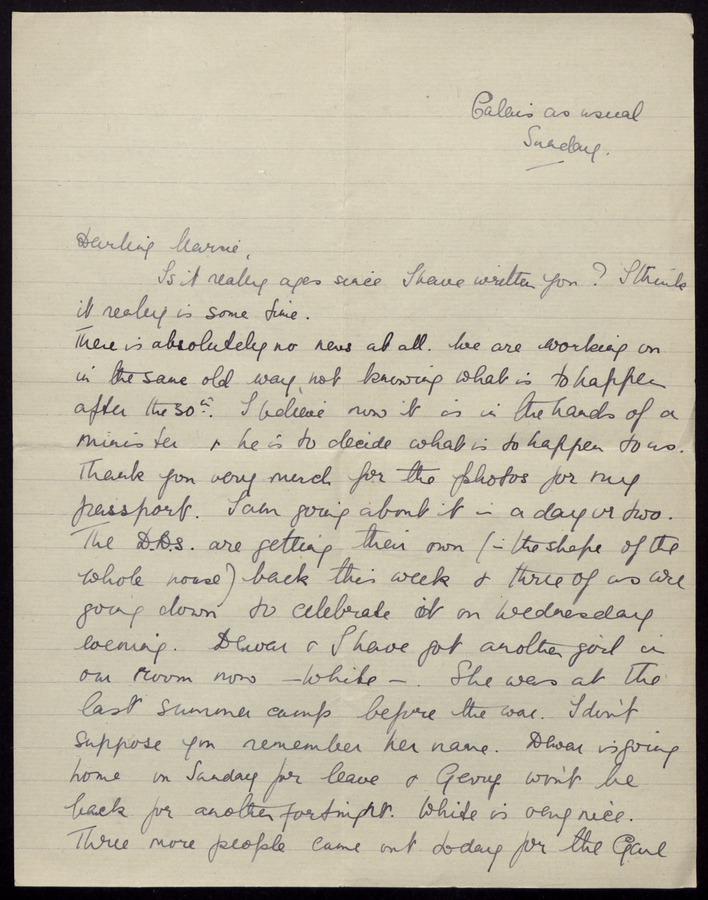 Calais as usual
Sunday.
Darling Marnie,
Is it really ages since I have written you? I think
it really is some time.
There is absolutely no news at all. We are working on
in the same old way, not knowing what is to happen
after the 30th. I believe now it is in the hands of a
minister & he is to decide what is to happen to us.
Thank you very much for the photos for my
passport. I am going about it in a day or two.
The D.D.s. are getting their own (in the shape of the
whole house) back this week & three of us are
going down to celebrate it on Wednesday
evening. Dewar & I have got another girl in
our room now – White –. She was at the
last summer camp before the war. I don't
suppose you remember her name. Dewar is going
home on Sunday for leave & won't be
back for another fortnight. White is very nice.
Three more people came out today for the